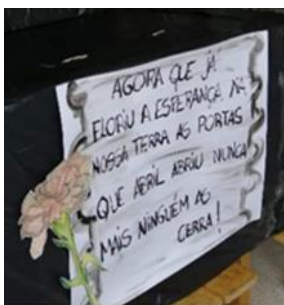 AGORA QUE JÁ
FLORIU A ESPERANÇA NA
NOSSA TERRA AS PORTAS
QUE ABRIL ABRIU NUNCA
MAIS NINGUÉM AS
CERRA!